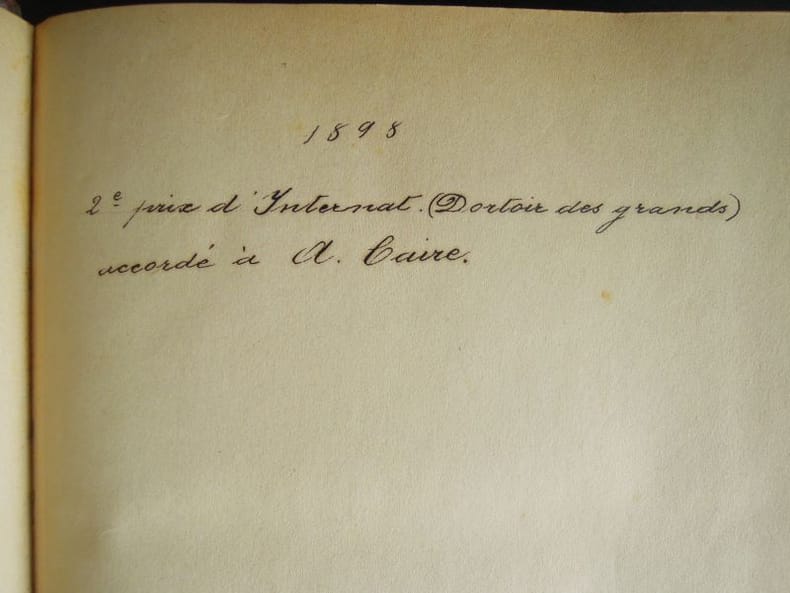 1898
2e prix d'Internat. (Dortoir des grands)
accordé à A. Caire.